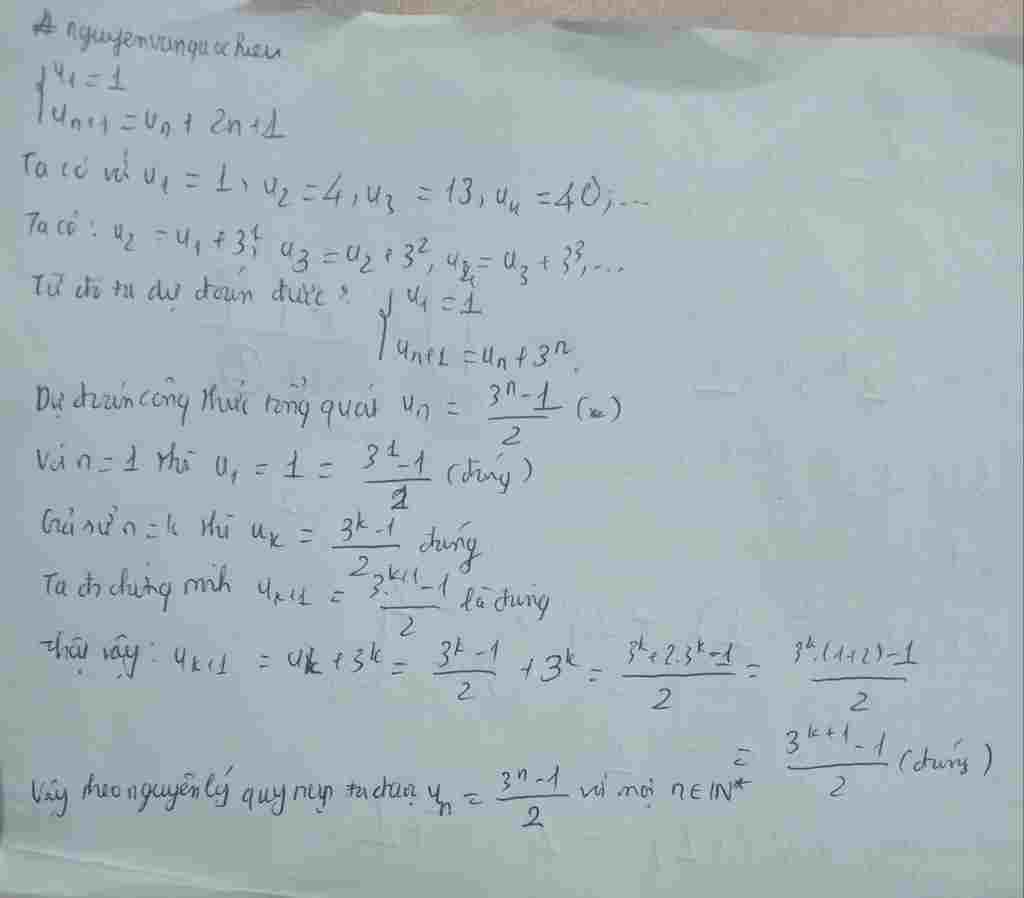 nguyenvanquochieu
{ u₁ = 1
u_{n+1} = u_n + 2n + 1
Ta có với u₁ = 1, u₂ = 4, u₃ = 13, u₄ = 40, ...
Ta có: u₂ = u₁ + 3¹, u₃ = u₂ + 3², u₄ = u₃ + 3³, ...
Từ đó ta dự đoán được: { u₁ = 1
u_{n+1} = u_n + 3ⁿ.
Dự đoán công thức tổng quát u_n = (3ⁿ - 1)/2 (*)
Với n = 1 thì u₁ = 1 = (3¹ - 1)/2 (đúng)
Giả sử n = k thì u_k = (3^k - 1)/2 đúng
Ta đi chứng minh u_{k+1} = (3^{k+1} - 1)/2 là đúng
Thật vậy: u_{k+1} = u_k + 3^k = (3^k - 1)/2 + 3^k = (3^k + 2.3^k - 1)/2 = (3^k.(1+2) - 1)/2
= (3^{k+1} - 1)/2 (đúng)
Vậy theo nguyên lý quy nạp ta được u_n = (3ⁿ - 1)/2 với mọi n ∈ ℕ*